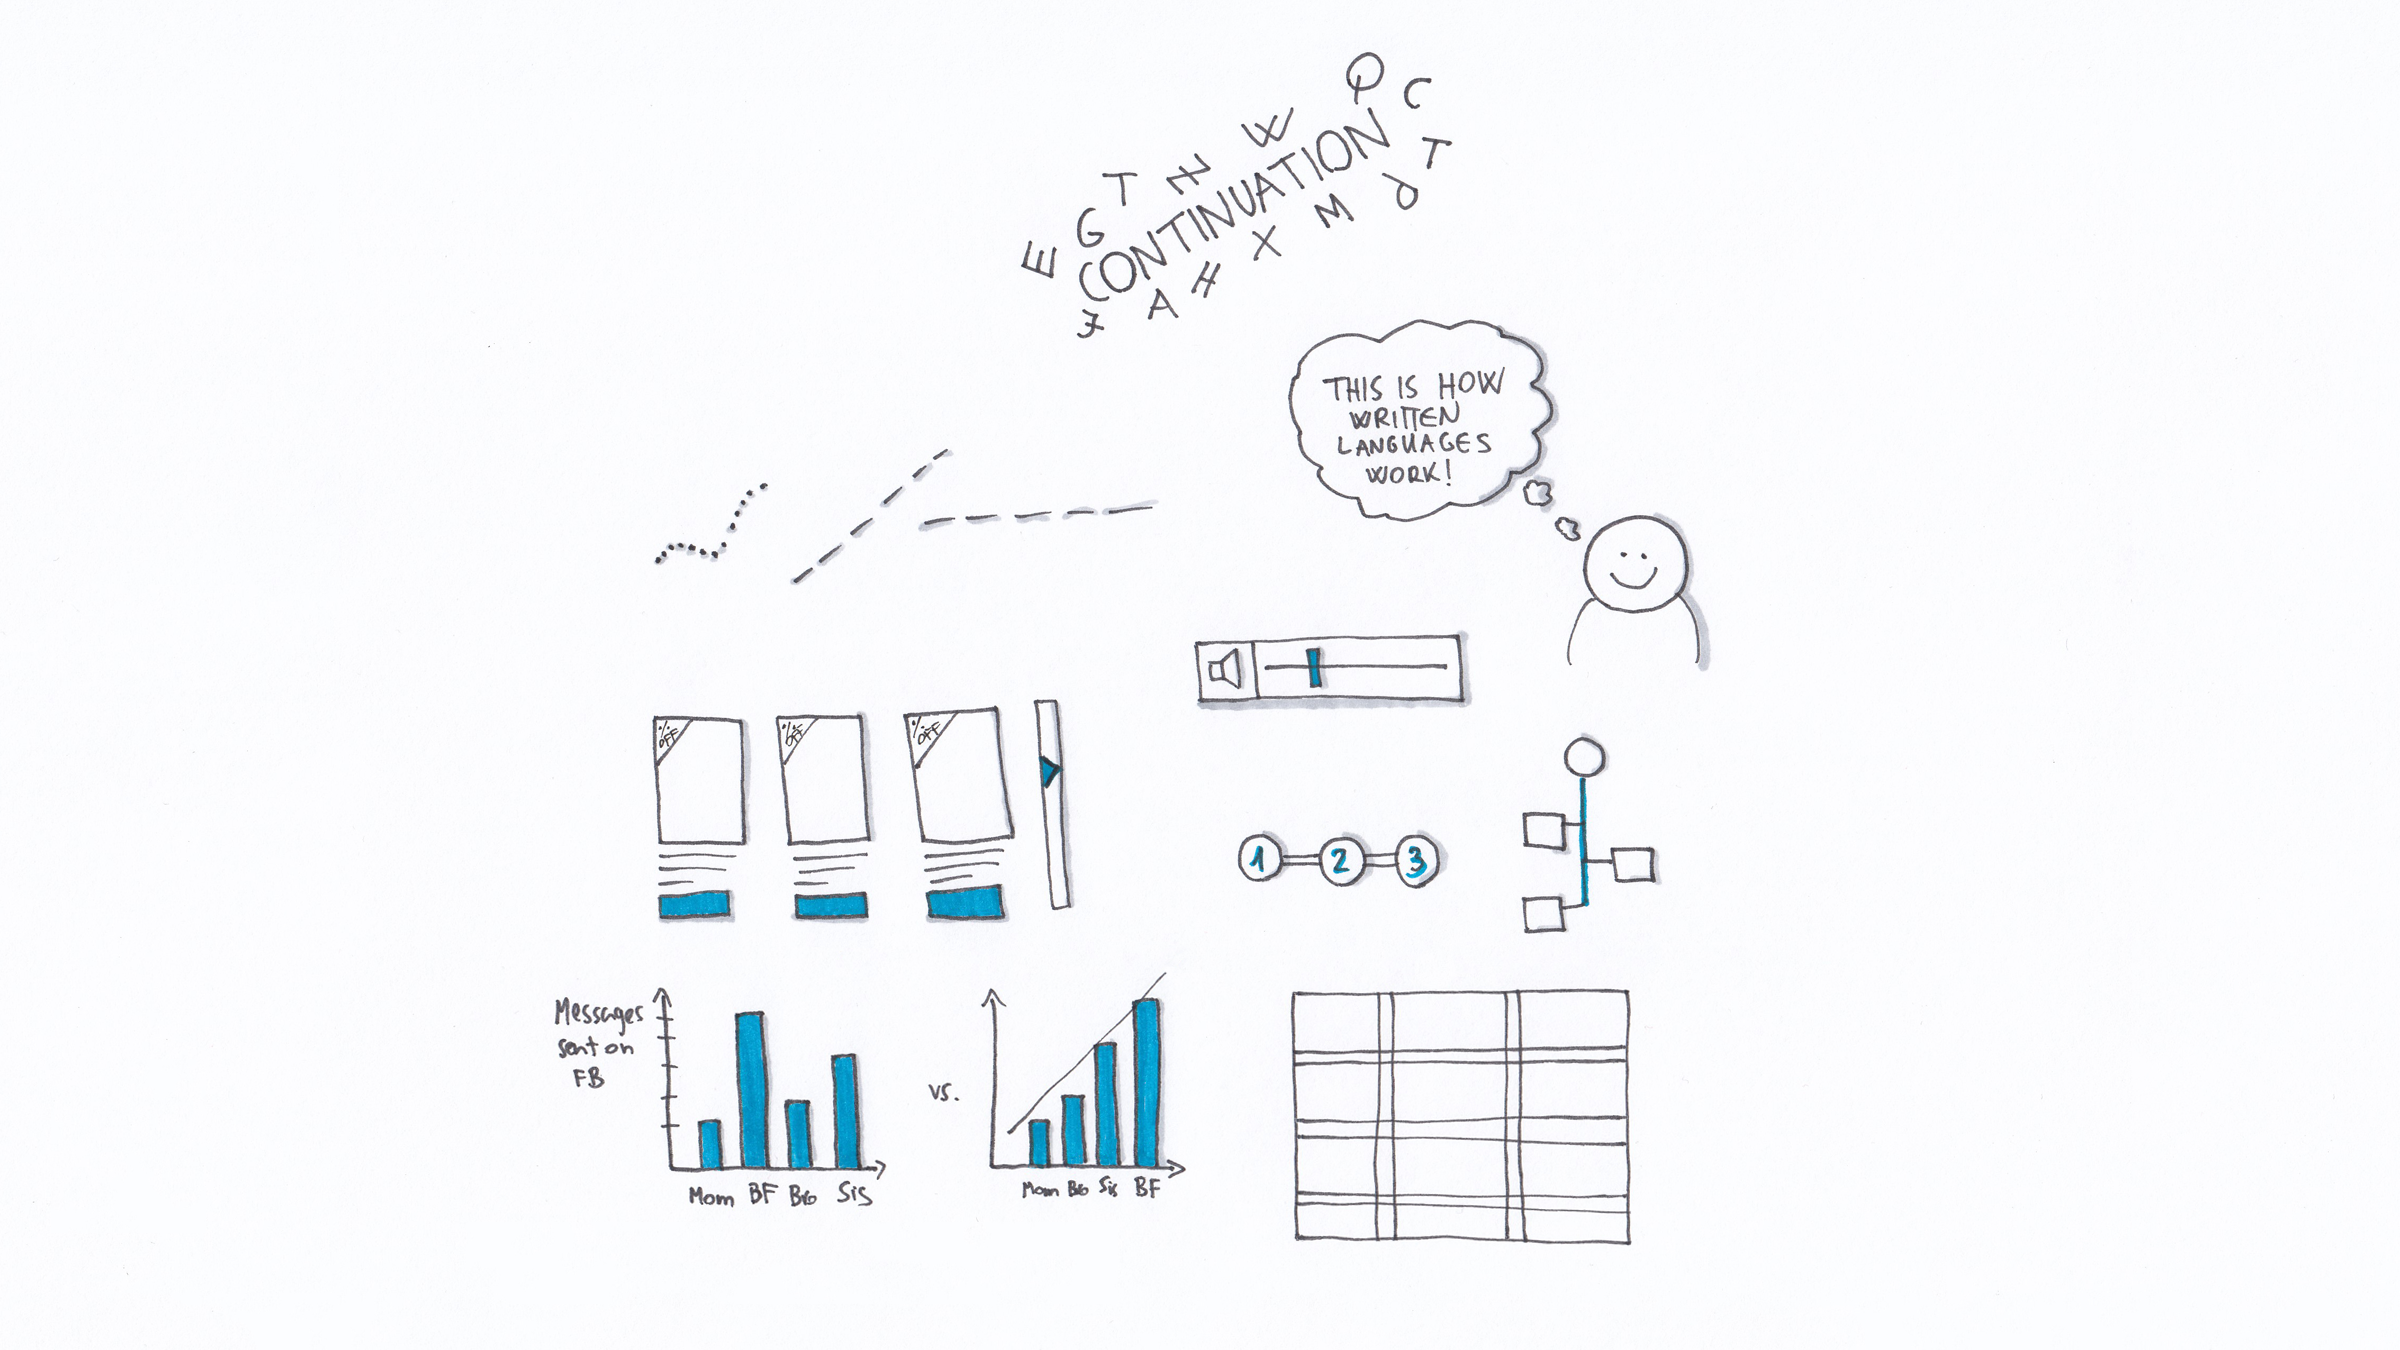 Q C
W
T N T
G CONTINUATION d
E M
X
H
A
J
THIS IS HOW
WRITTEN
LANGUAGES
WORK!
% OFF
% OFF
% OFF
1 2 3
Messages
sent on
FB
vs.
Mom BF Bro Sis
Mom Bro Sis BF